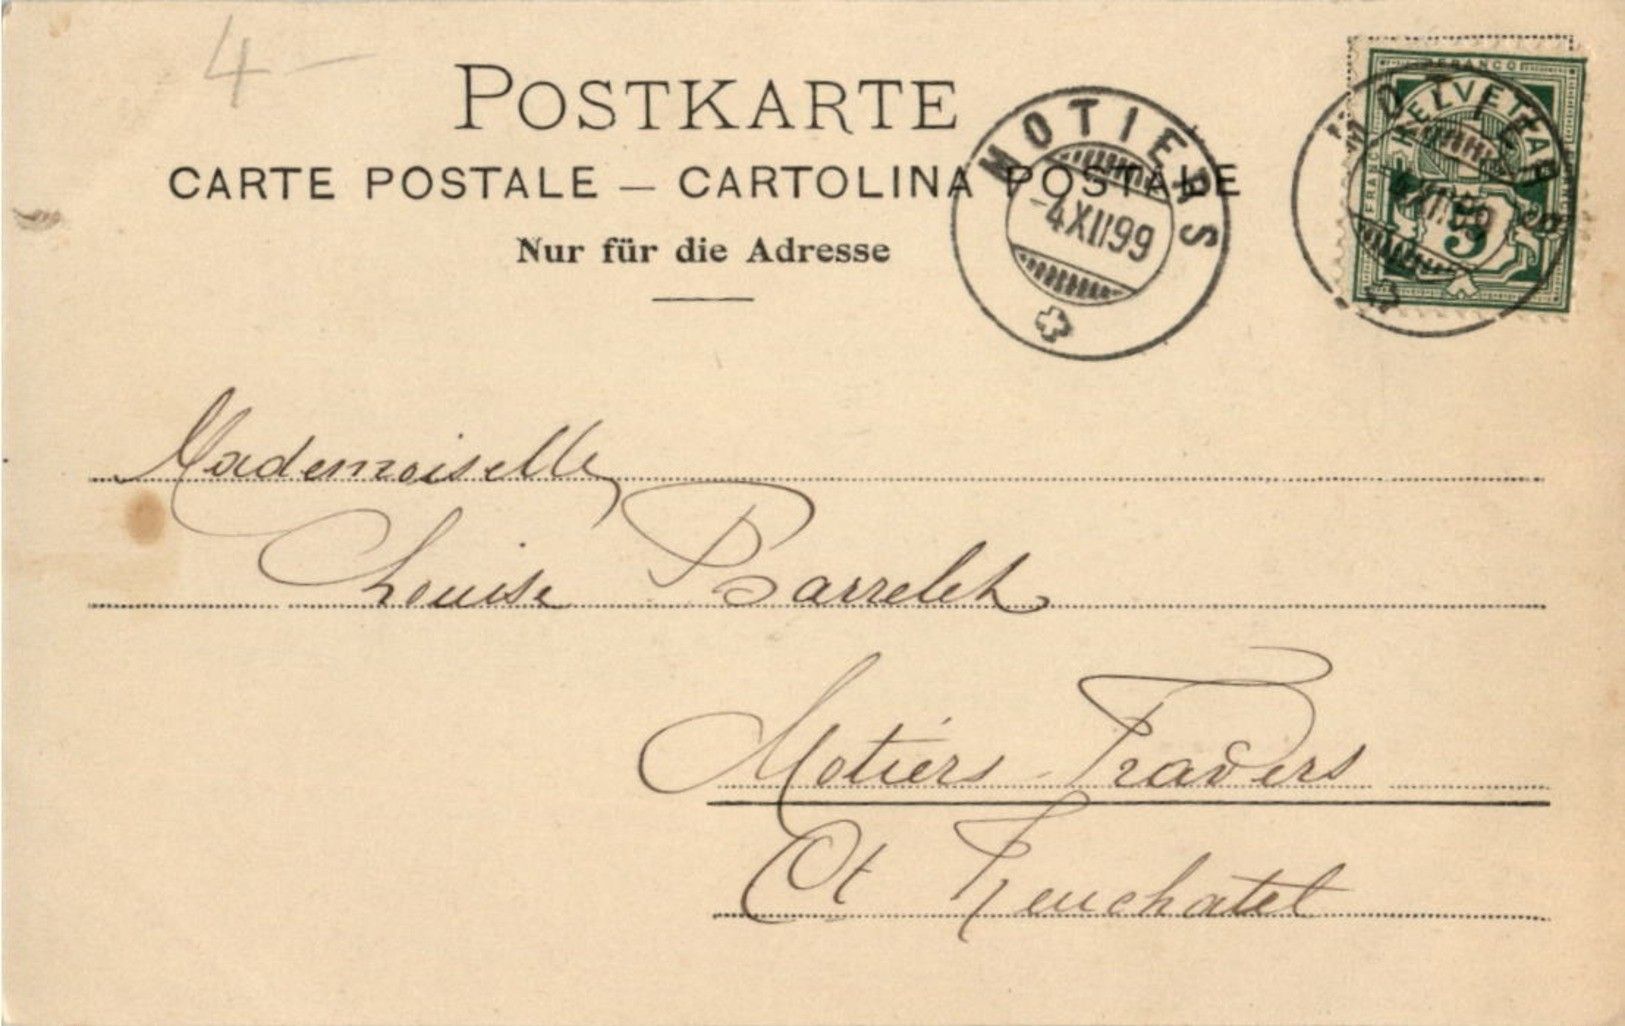 4 –
POSTKARTE
CARTE POSTALE — CARTOLINA POSTALE
Nur für die Adresse
MOTIERS
-4XII99
FRANCO
HELVETIA
5
MOTIERS
XII99
Mademoiselle
Louise Barrelet
Motiers-Travers
Ct Neuchatel